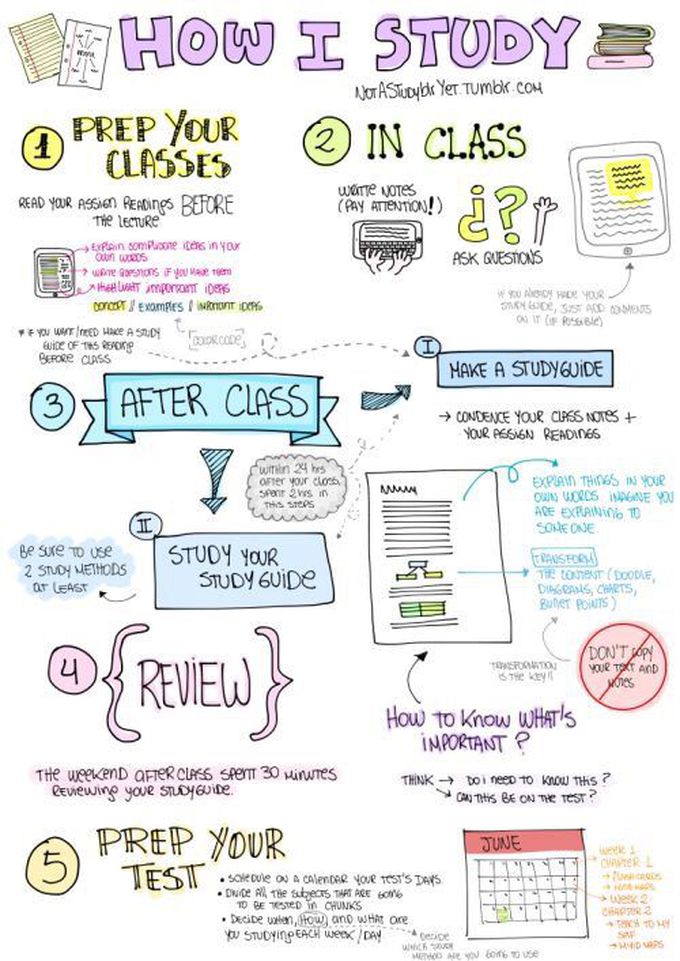 HOW I STUDY
NotAStudyblrYet.Tumblr.com
1
PREP YOUR
CLASSES
READ YOUR ASSIGN READINGS BEFORE
THE LECTURE
EXPLAIN COMPLICATE IDEAS IN YOUR
OWN WORDS
WRITE QUESTIONS IF YOU HAVE THEM
HIGHLIGHT IMPORTANT IDEAS
CONCEPT // EXAMPLES // IMPORTANT IDEAS
[COLOR CODE]
* IF YOU WANT/NEED MAKE A STUDY
GUIDE OF THIS READING
BEFORE CLASS
2
IN CLASS
WRITE NOTES
(PAY ATTENTION!)
¿?
ASK QUESTIONS
IF YOU ALREADY MADE YOUR
STUDY GUIDE, JUST ADD COMMENTS
ON IT (IF POSSIBLE)
3
AFTER CLASS
I
MAKE A STUDYGUIDE
→ CONDENCE YOUR CLASS NOTES +
YOUR ASSIGN READINGS
WITHIN 24 HRS
AFTER YOUR CLASS,
SPENT 2 HRS IN
THIS STEPS
EXPLAIN THINGS IN YOUR
OWN WORDS IMAGINE YOU
ARE EXPLAINING TO
SOMEONE.
TRANSFORM
THE CONTENT (DOODLE,
DIAGRAMS, CHARTS,
BULLET POINTS)
TRANSFORMATION
IS THE KEY!!
DON'T COPY
YOUR TEXT AND
NOTES
II
STUDY YOUR
STUDYGUIDE
BE SURE TO USE
2 STUDY METHODS
AT LEAST
HOW TO KNOW WHAT'S
IMPORTANT?
THINK → DO I NEED TO KNOW THIS?
→ CAN THIS BE ON THE TEST?
4
{REVIEW}
THE WEEKEND AFTER CLASS SPENT 30 MINUTES
REVIEWING YOUR STUDYGUIDE.
5
PREP YOUR
TEST
• SCHEDULE ON A CALENDAR YOUR TEST'S DAYS.
• DIVIDE ALL THE SUBJECTS THAT ARE GOING
TO BE TESTED IN CHUNKS
• DECIDE WHEN, HOW, AND WHAT ARE
YOU STUDYING EACH WEEK/DAY
DECIDE
WHICH STUDY
METHOD ARE YOU GOING TO USE
JUNE
WEEK 1
CHAPTER 1
→ FLASHCARDS
→ MIND MAPS
WEEK 2
CHAPTER 2
→ TEACH TO MY
SELF
→ MIND MAPS